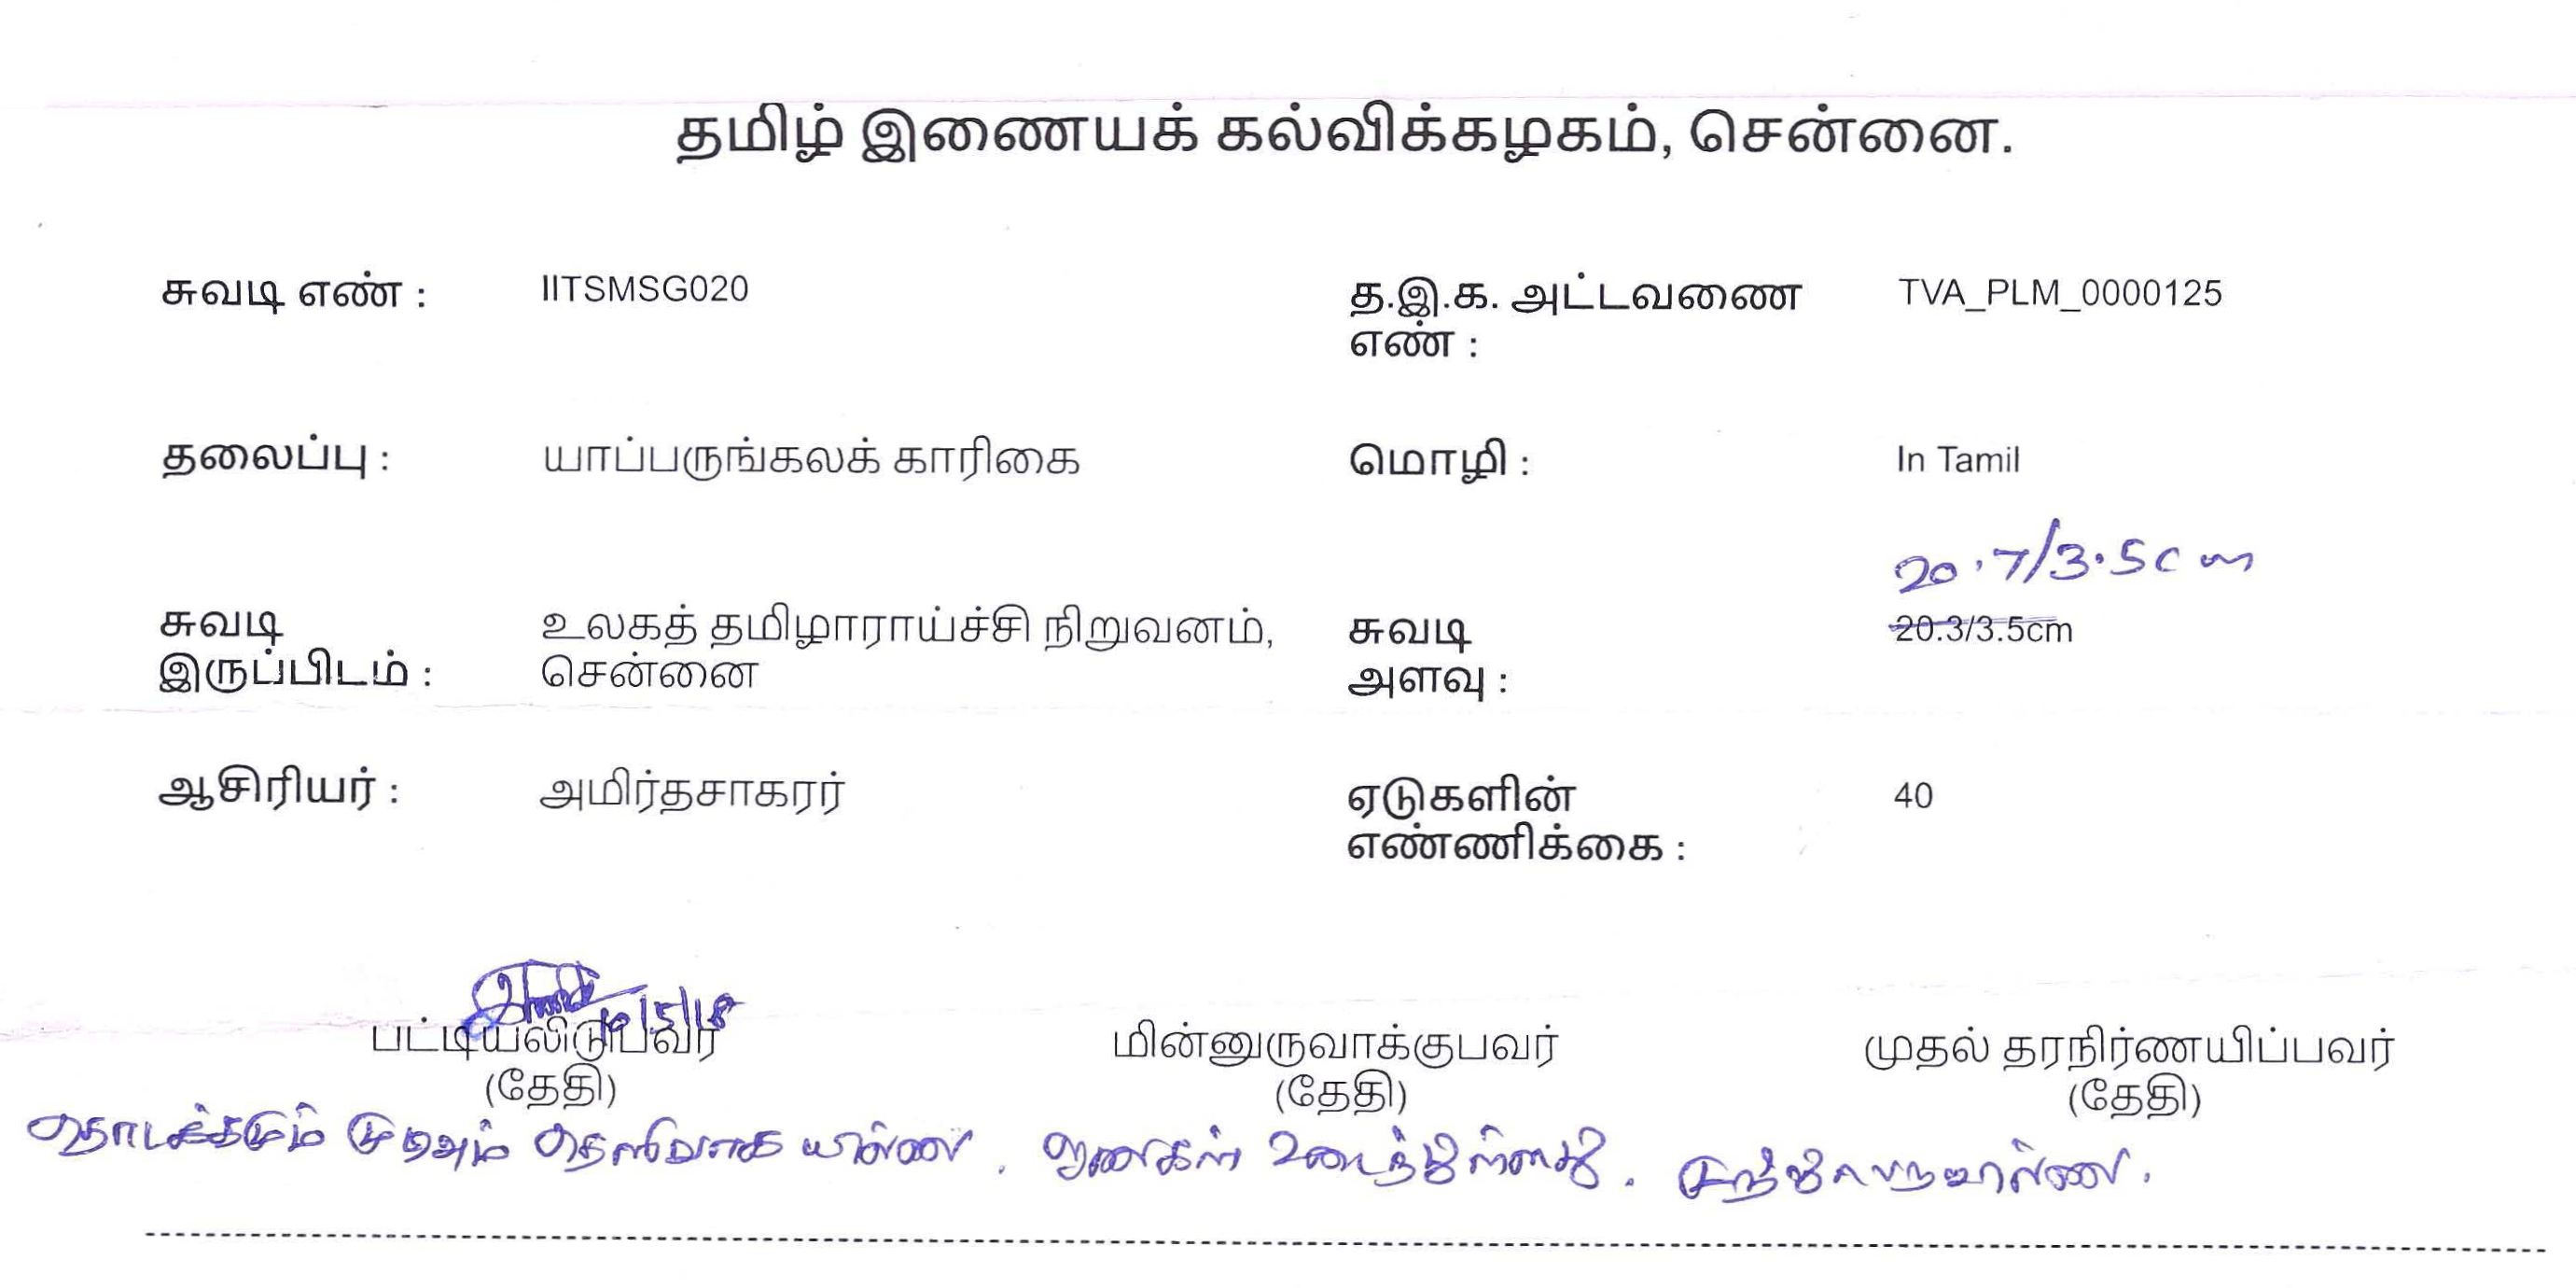 தமிழ் இணையக் கல்விக்கழகம், சென்னை.
சுவடி எண் : IITSMSG020 த.இ.க. அட்டவணை எண் : TVA_PLM_0000125
தலைப்பு : யாப்பருங்கலக் காரிகை மொழி : In Tamil
20.7/3.5cm
சுவடி இருப்பிடம் : உலகத் தமிழாராய்ச்சி நிறுவனம், சென்னை சுவடி அளவு : 20.3/3.5cm
ஆசிரியர் : அமிர்தசாகரர் ஏடுகளின் எண்ணிக்கை : 40
பட்டியலிடுபவர் மின்னுருவாக்குபவர் முதல் தரநிர்ணயிப்பவர்
(தேதி) (தேதி) (தேதி)
தொடக்கமும்